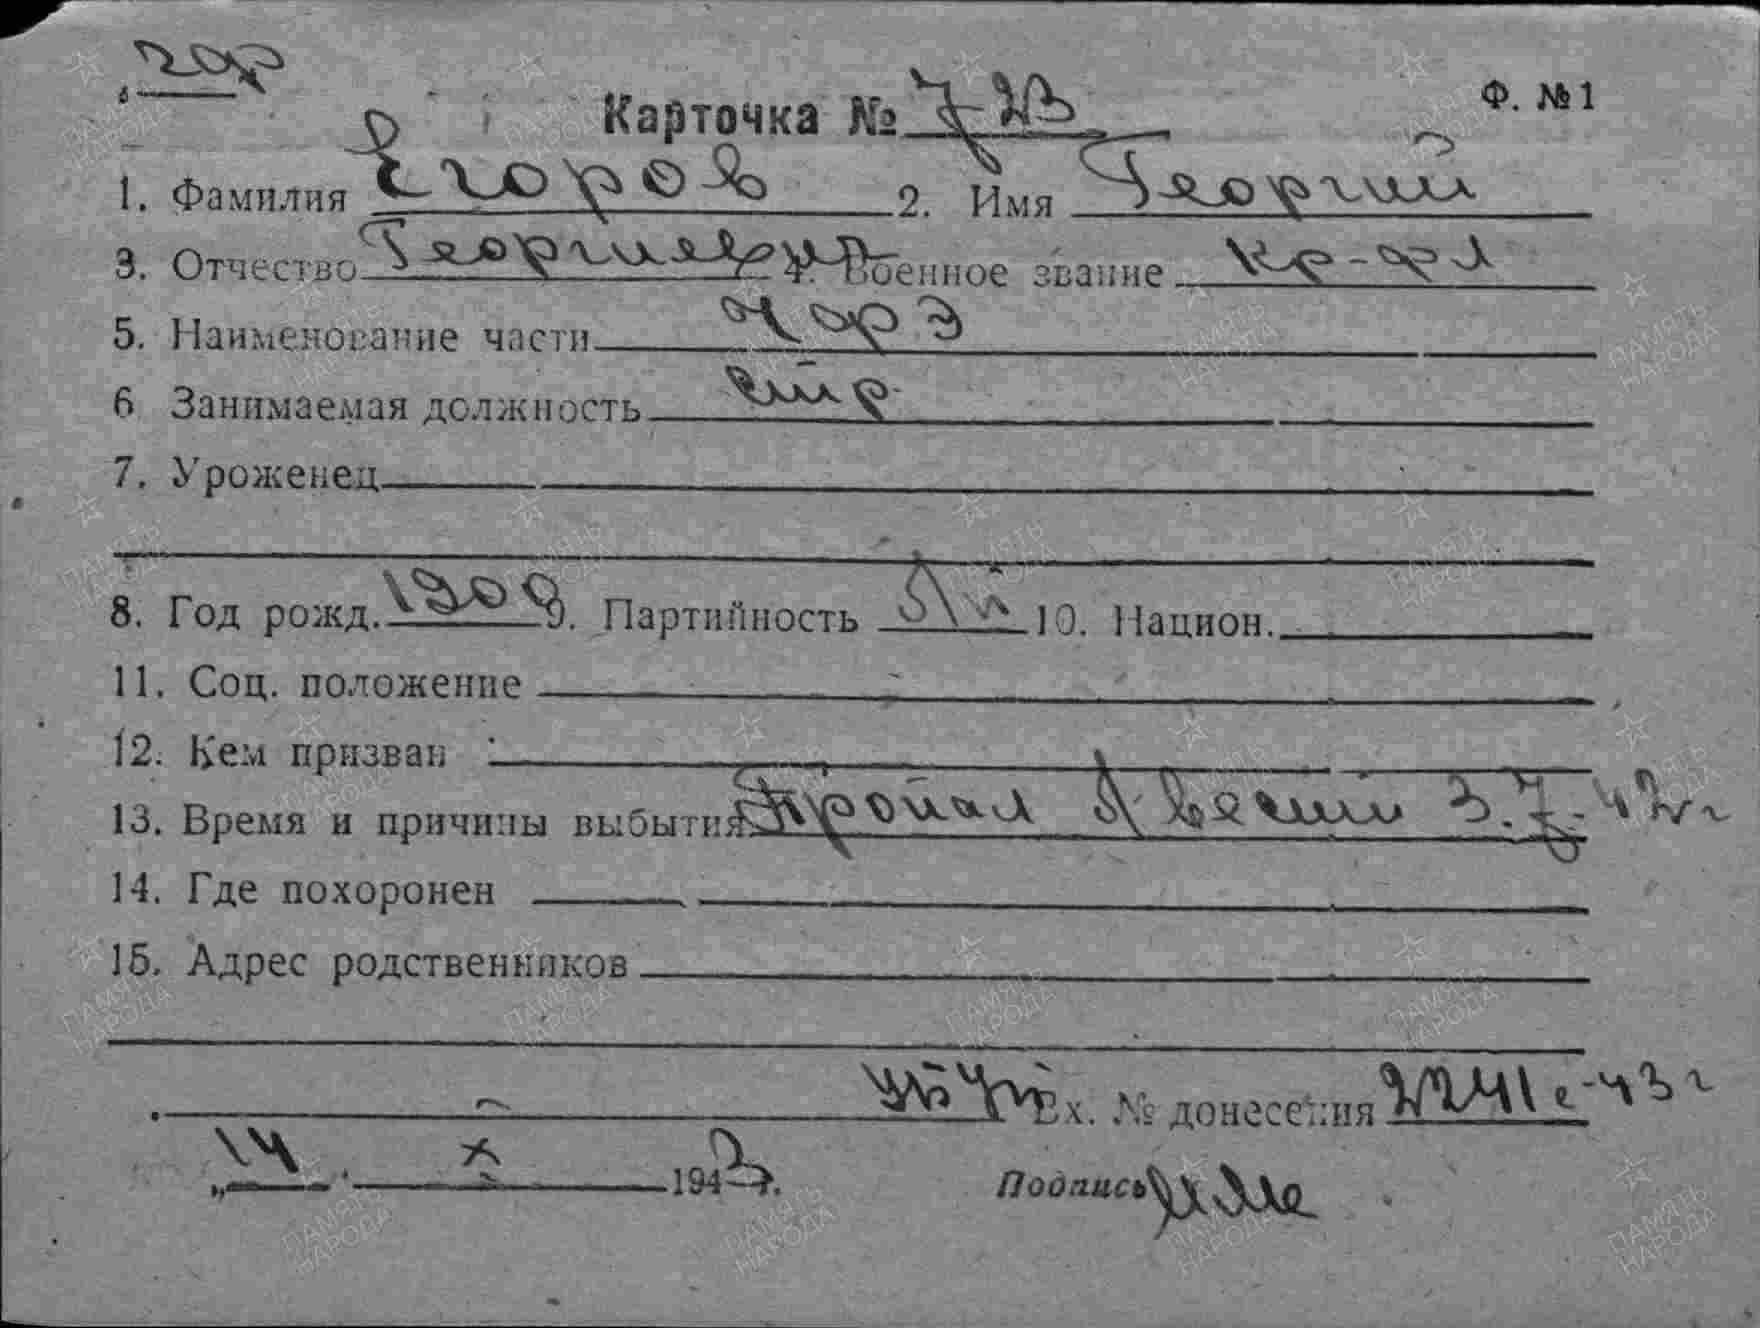 Ф. №1
Карточка №
1. Фамилия Егоров 2. Имя Георгий
3. Отчество Георгиевич 4. Военное звание кр-фл
5. Наименование части ЧФ
6 Занимаемая должность стр.
7. Уроженец
8. Год рожд. 1909 9. Партийность 10. Национ.
11. Соц. положение
12. Кем призван
13. Время и причины выбытия Пропал вести 3.7.42 г
14. Где похоронен
15. Адрес родственников
Вх. № донесения 43 г
„14 X 1943 г.
Подпись
ПАМЯТЬ НАРОДА